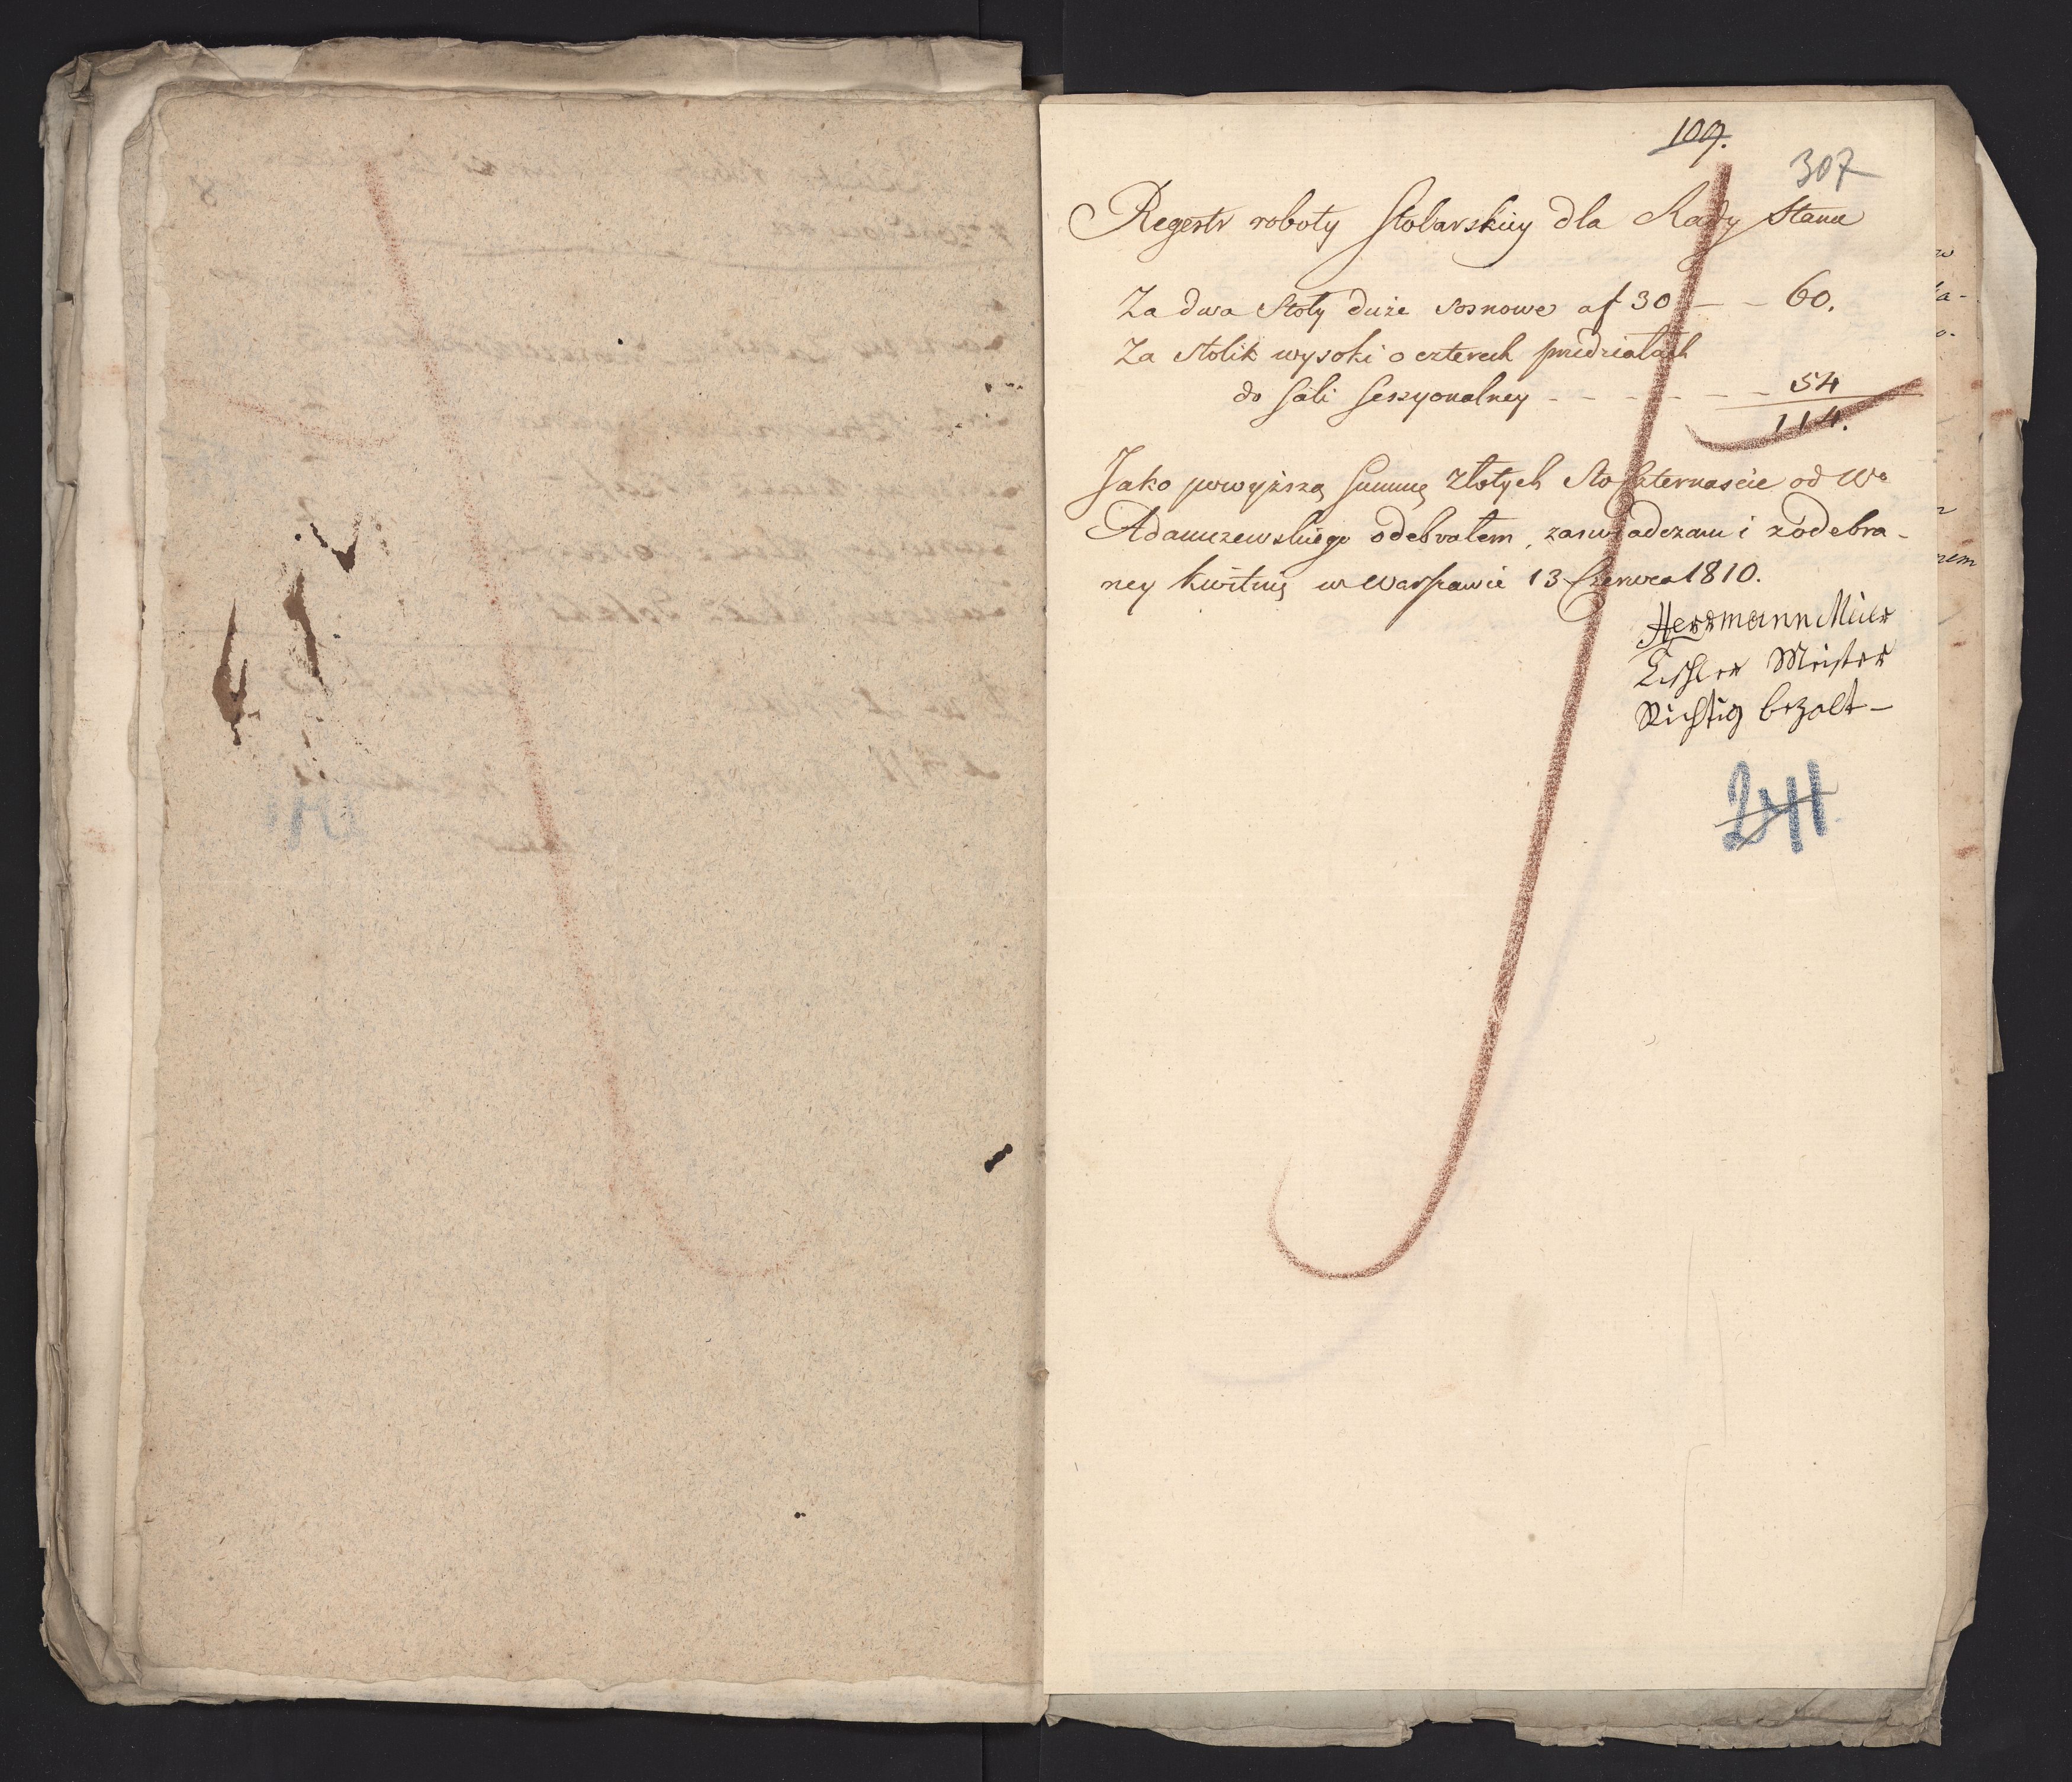 109.
307
Regestr roboty Stolarskiey dla Rady Stanu
Za dwa Stoły duże sosnowe a f 30 — — 60.
Za stolik wysoki o czterech przedziałach
do Sali Sessyonalney - - - - - - 54
114.
Jako powyższą Summę złotych Sto Czternaście od We
Adamczewskiego odebrałem, zaswiadczam i z odebra-
ney kwituię w Warszawie 13 Czerwca 1810.
Herrmann Meier
Tischler Meister
Richtig bezalt —